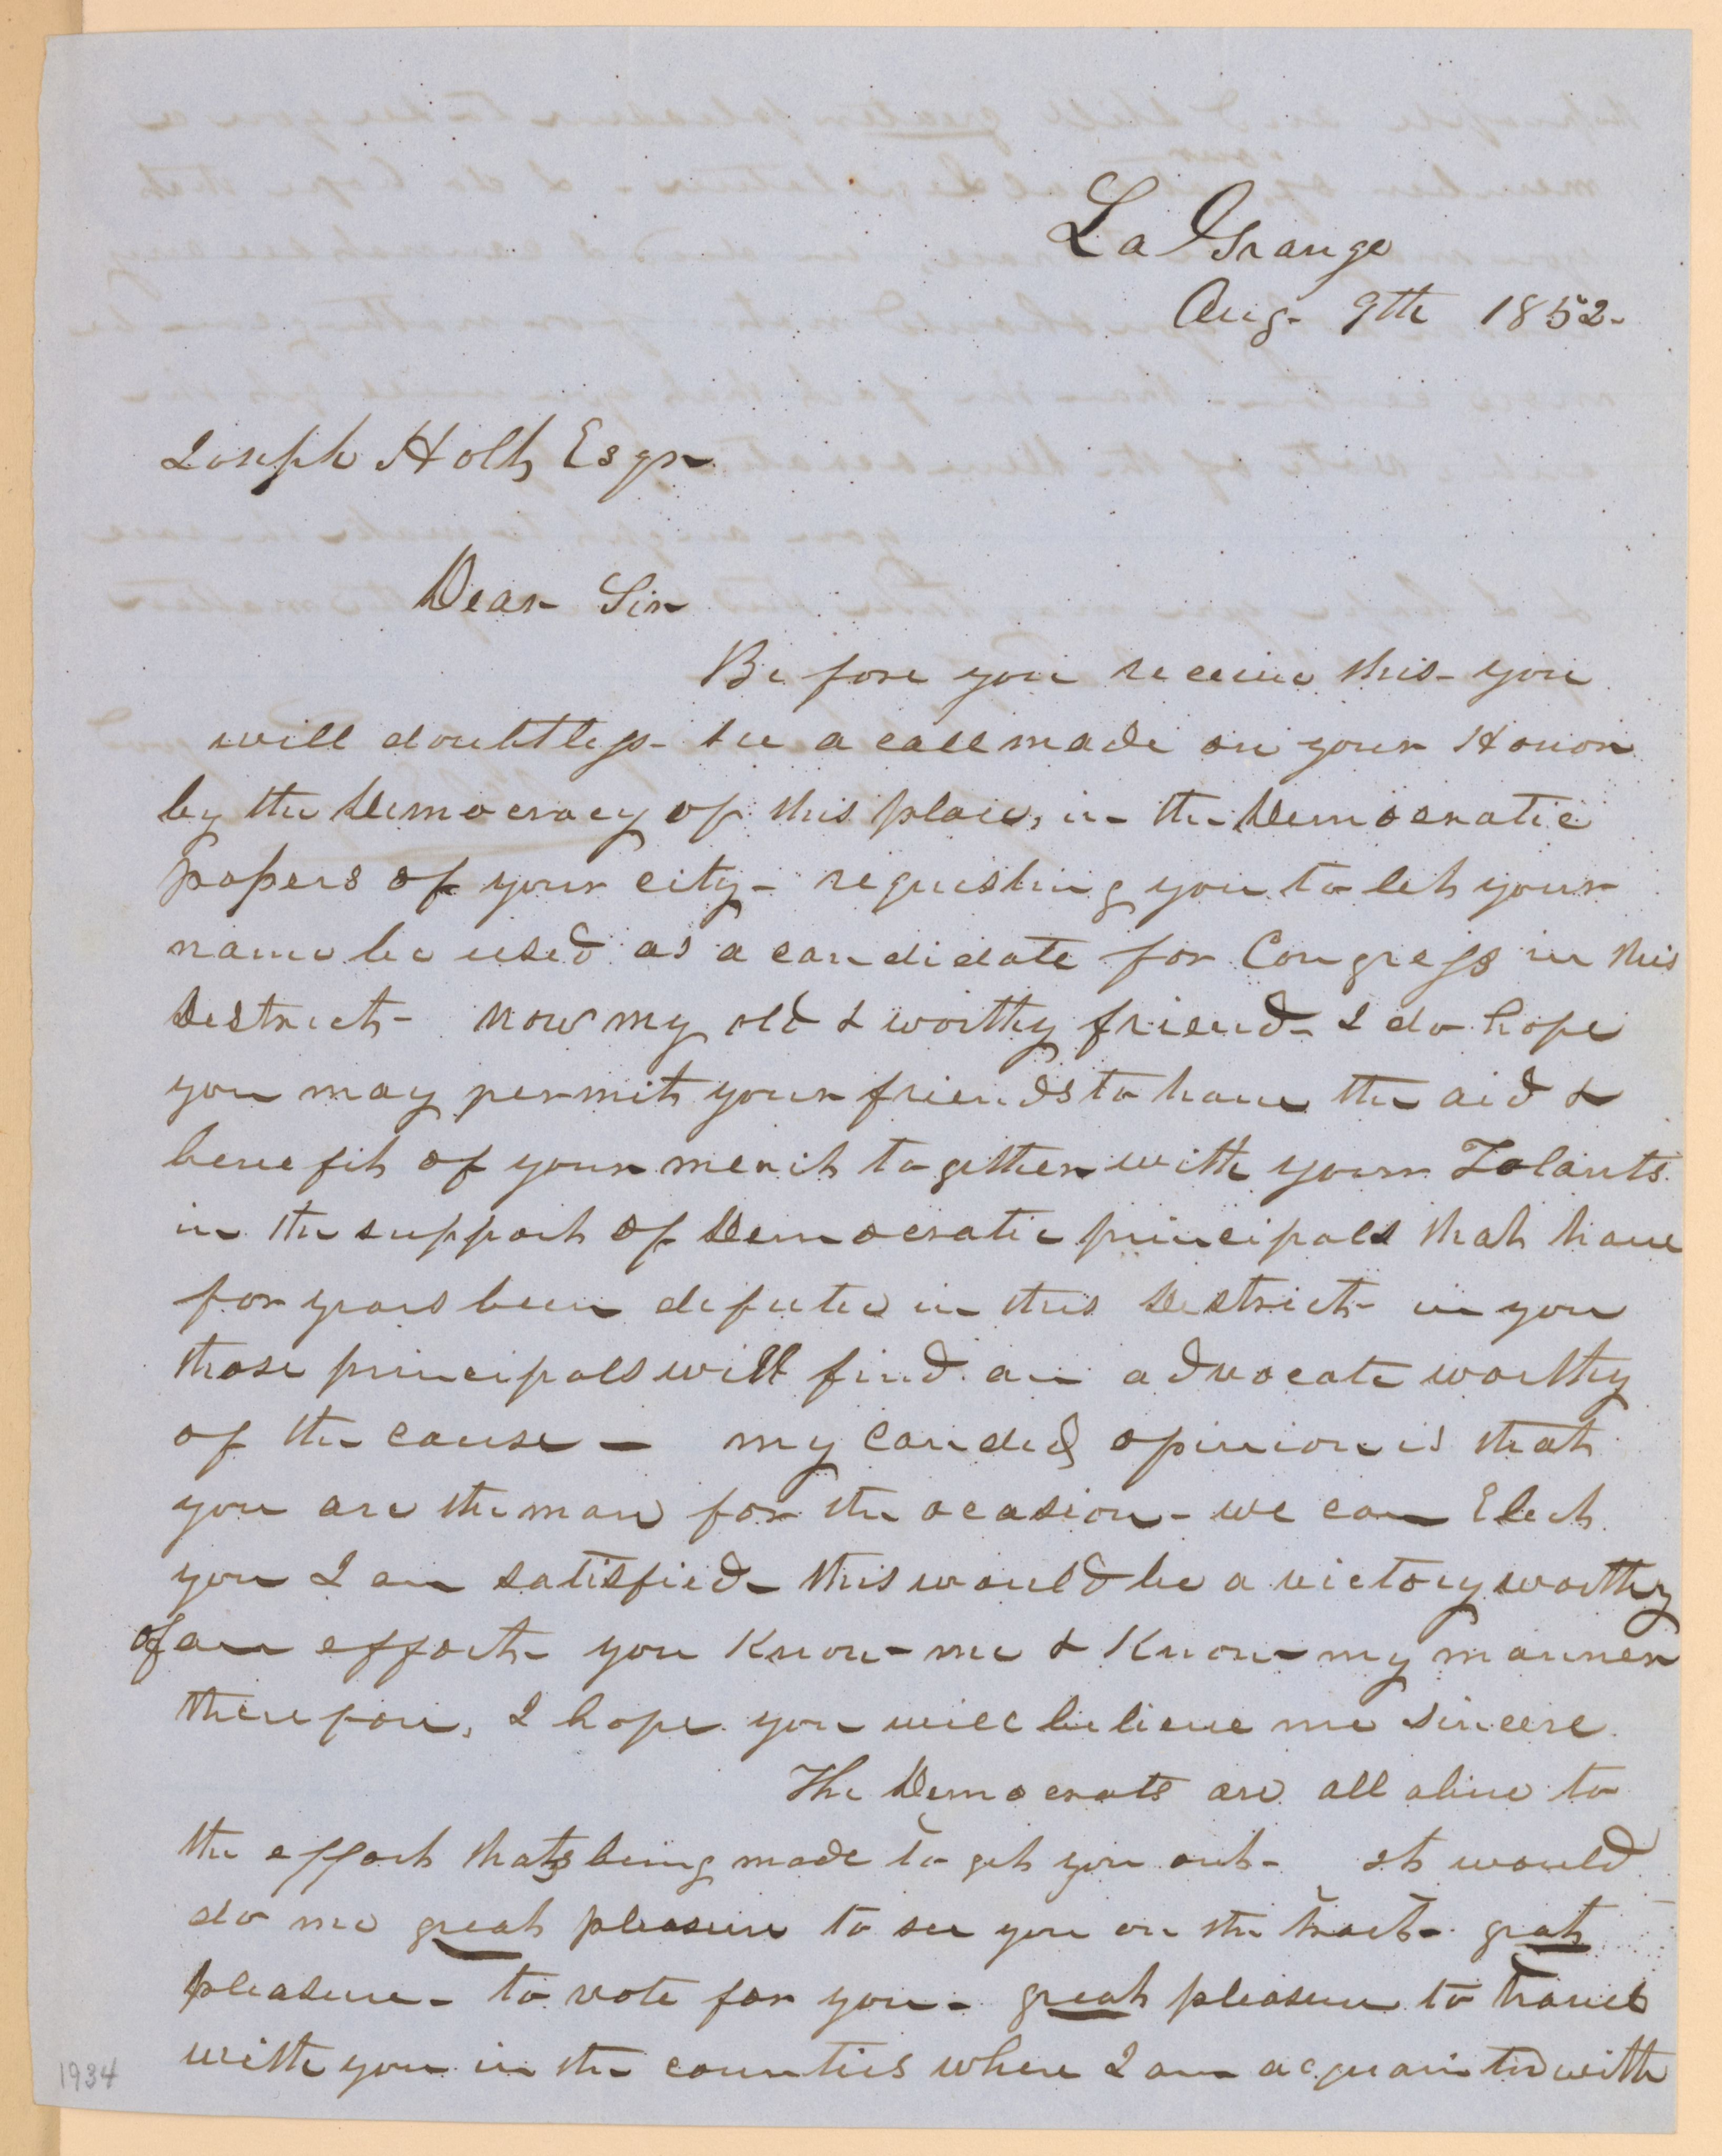 La Grange
Aug. 9th 1852.
Joseph Holt Esqr
Dear Sir
Before you receive this - you
will doubtless - see a call made on your Honor
by the Democracy of this place, in the Democratic
papers of your city - requesting you to let your
name be used as a candidate for Congress in this
District - now my old & worthy friend - I do hope
you may permit your friends to have the aid &
benefit of your merit together with your Talants
in the support of Democratic principals that have
for years been defeated in this District - in you
those principals will find an advocate worthy
of the cause - my candid opinion is that
you are the man for the ocasion - we can Elect
you I am satisfied - this would be a victory worthy
of an effort - you know me & know my manner
therefore, I hope you will believe me sincere.
The Democrats are all alive to
the effort thats being made to get you out - it would
do me great pleasure to see you on the tract - grat
pleasure - to vote for you - great pleasure to travel
with you in the counties where I am acquainted with
1934